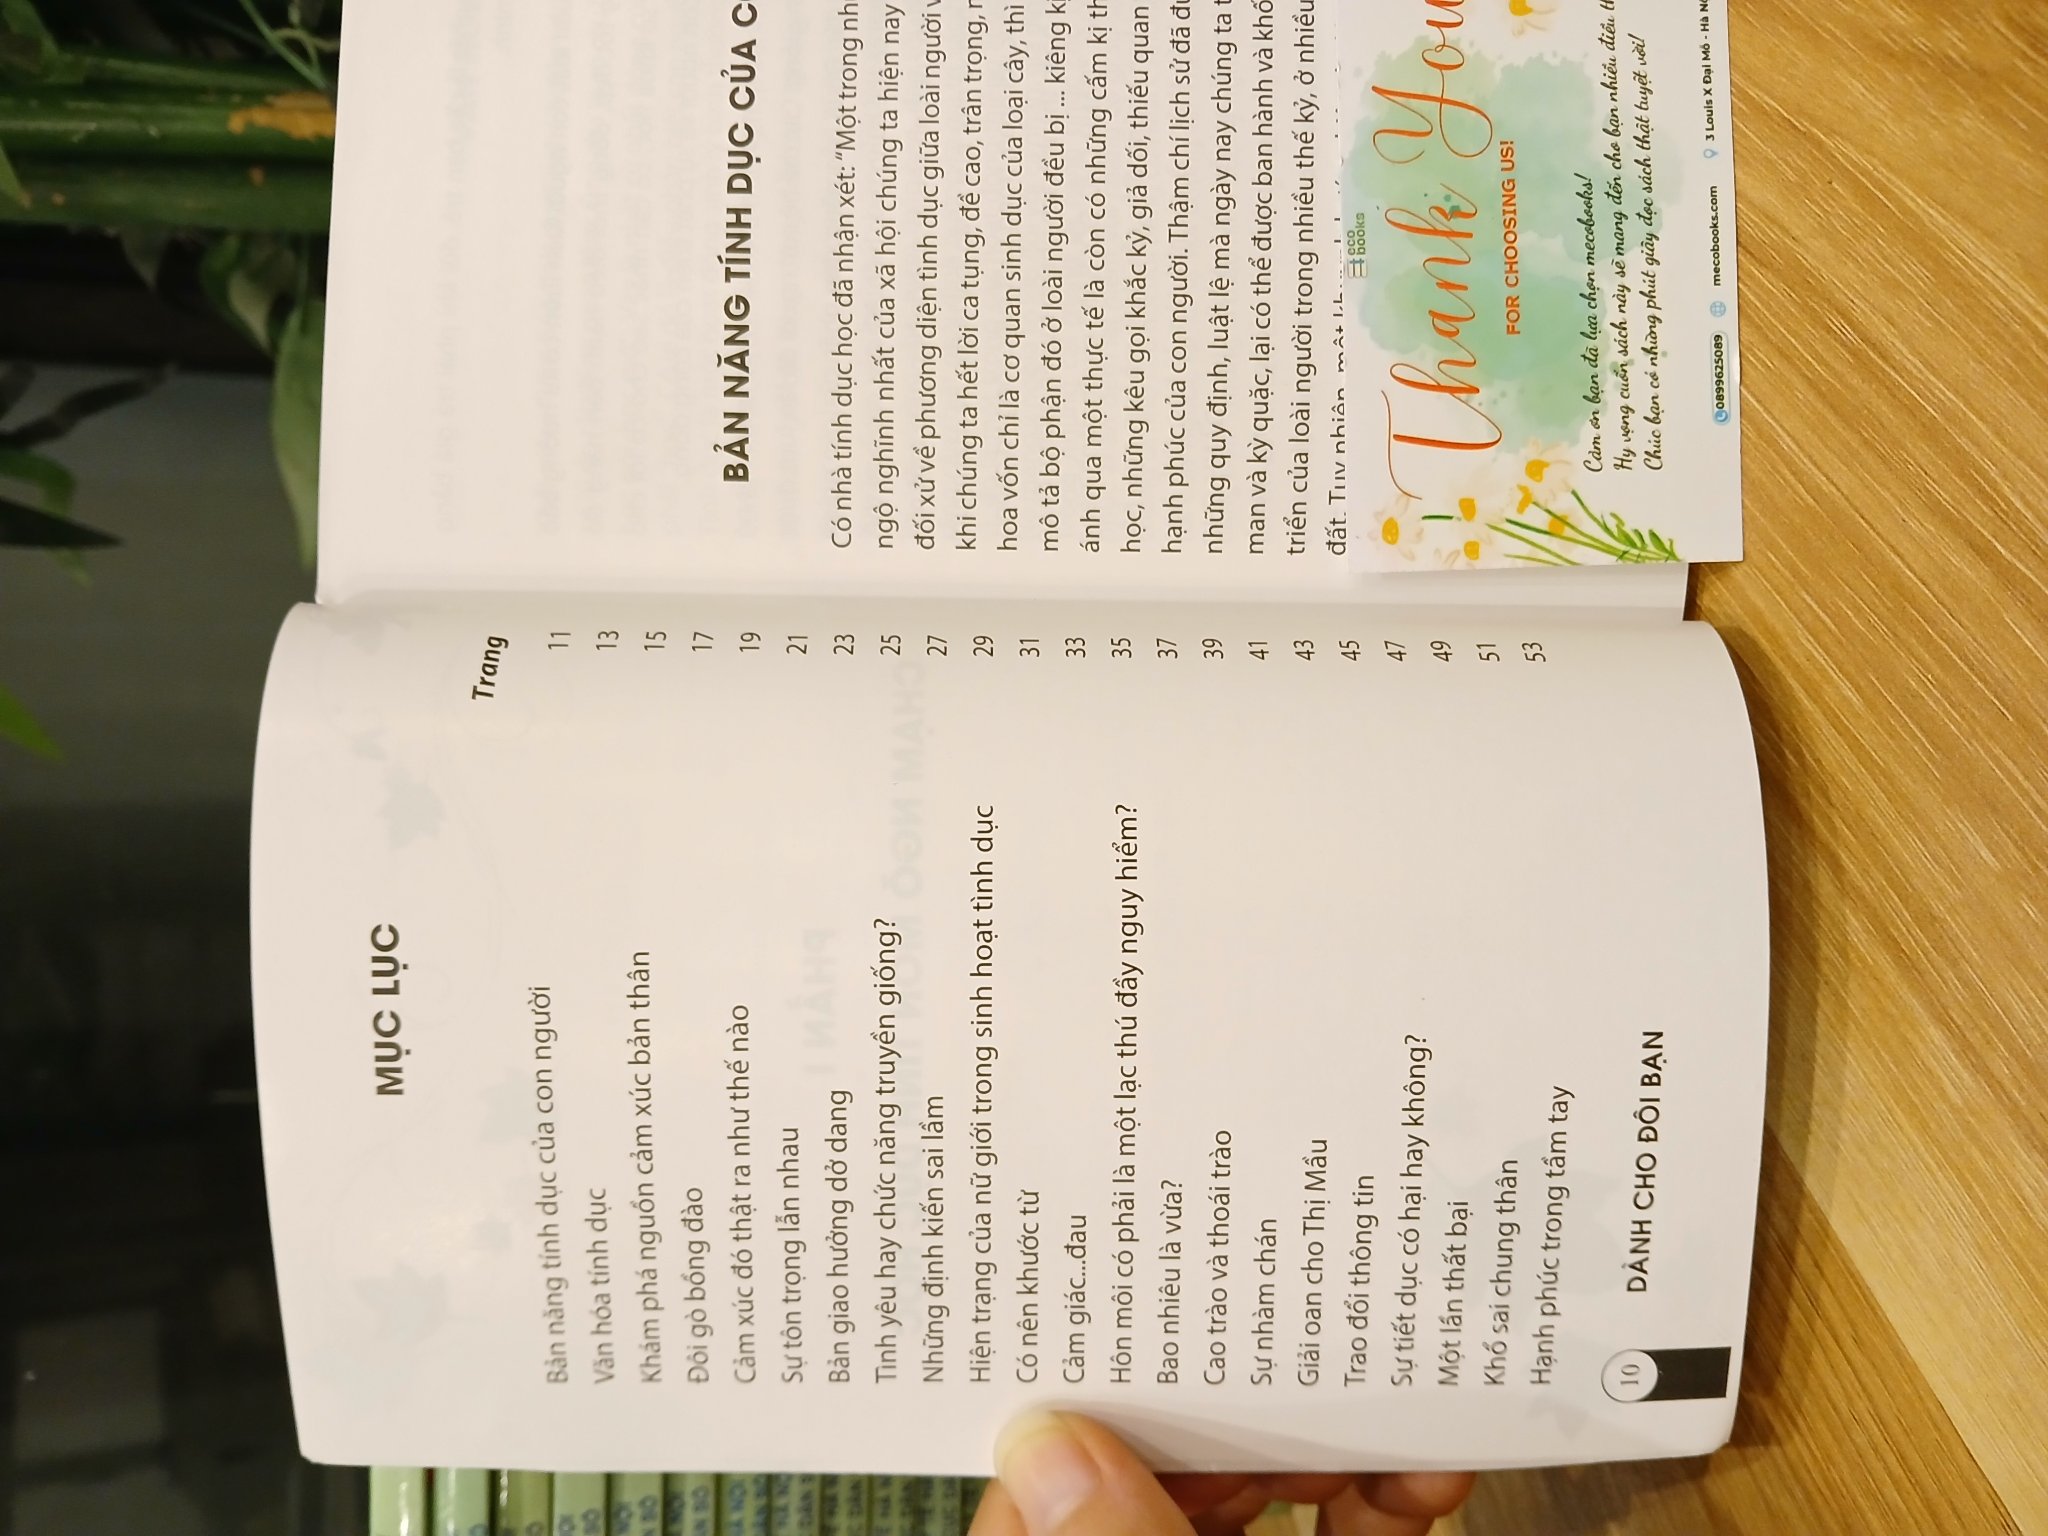 MỤC LỤC
Trang
Bản năng tính dục của con người 11
Văn hóa tính dục 13
Khám phá nguồn cảm xúc bản thân 15
Đôi gò bồng đào 17
Cảm xúc đó thật ra như thế nào 19
Sự tôn trọng lẫn nhau 21
Bản giao hưởng dở dang 23
Tình yêu hay chức năng truyền giống? 25
Những định kiến sai lầm 27
Hiện trạng của nữ giới trong sinh hoạt tình dục 29
Có nên khước từ 31
Cảm giác...đau 33
Hôn môi có phải là một lạc thú đầy nguy hiểm? 35
Bao nhiêu là vừa? 37
Cao trào và thoái trào 39
Sự nhàm chán 41
Giải oan cho Thị Mầu 43
Trao đổi thông tin 45
Sự tiết dục có hại hay không? 47
Một lần thất bại 49
Khổ sai chung thân 51
Hạnh phúc trong tầm tay 53
10 DÀNH CHO ĐÔI BẠN
BẢN NĂNG TÍNH DỤC CỦA
Có nhà tính dục học đã nhận xét: “Một trong
ngộ nghĩnh nhất của xã hội chúng ta hiện nay
đối xử về phương diện tình dục giữa loài người
khi chúng ta hết lời ca tụng, đề cao, trân trọng,
hoa vốn chỉ là cơ quan sinh dục của loại cây, thì
mô tả bộ phận đó ở loài người đều bị ... kiêng
ánh qua một thực tế là còn có những cấm kị
học, những kêu gọi khắc kỷ, giả dối, thiếu quan
hạnh phúc của con người. Thậm chí lịch sử đã
những quy định, luật lệ mà ngày nay chúng ta
man và kỳ quặc, lại có thể được ban hành và
triển của loài người trong nhiều thế kỷ, ở nhiều
đất. Tuy nhiên, một
eco
books
Thank You
FOR CHOOSING US!
Cảm ơn bạn đã lựa chọn mecobooks!
Hy vọng cuốn sách này sẽ mang đến cho bạn nhiều điều
Chúc bạn có những phút giây đọc sách thật tuyệt vời!
0899625089 mecobooks.com 3 Louis X Đại Mỗ - Hà